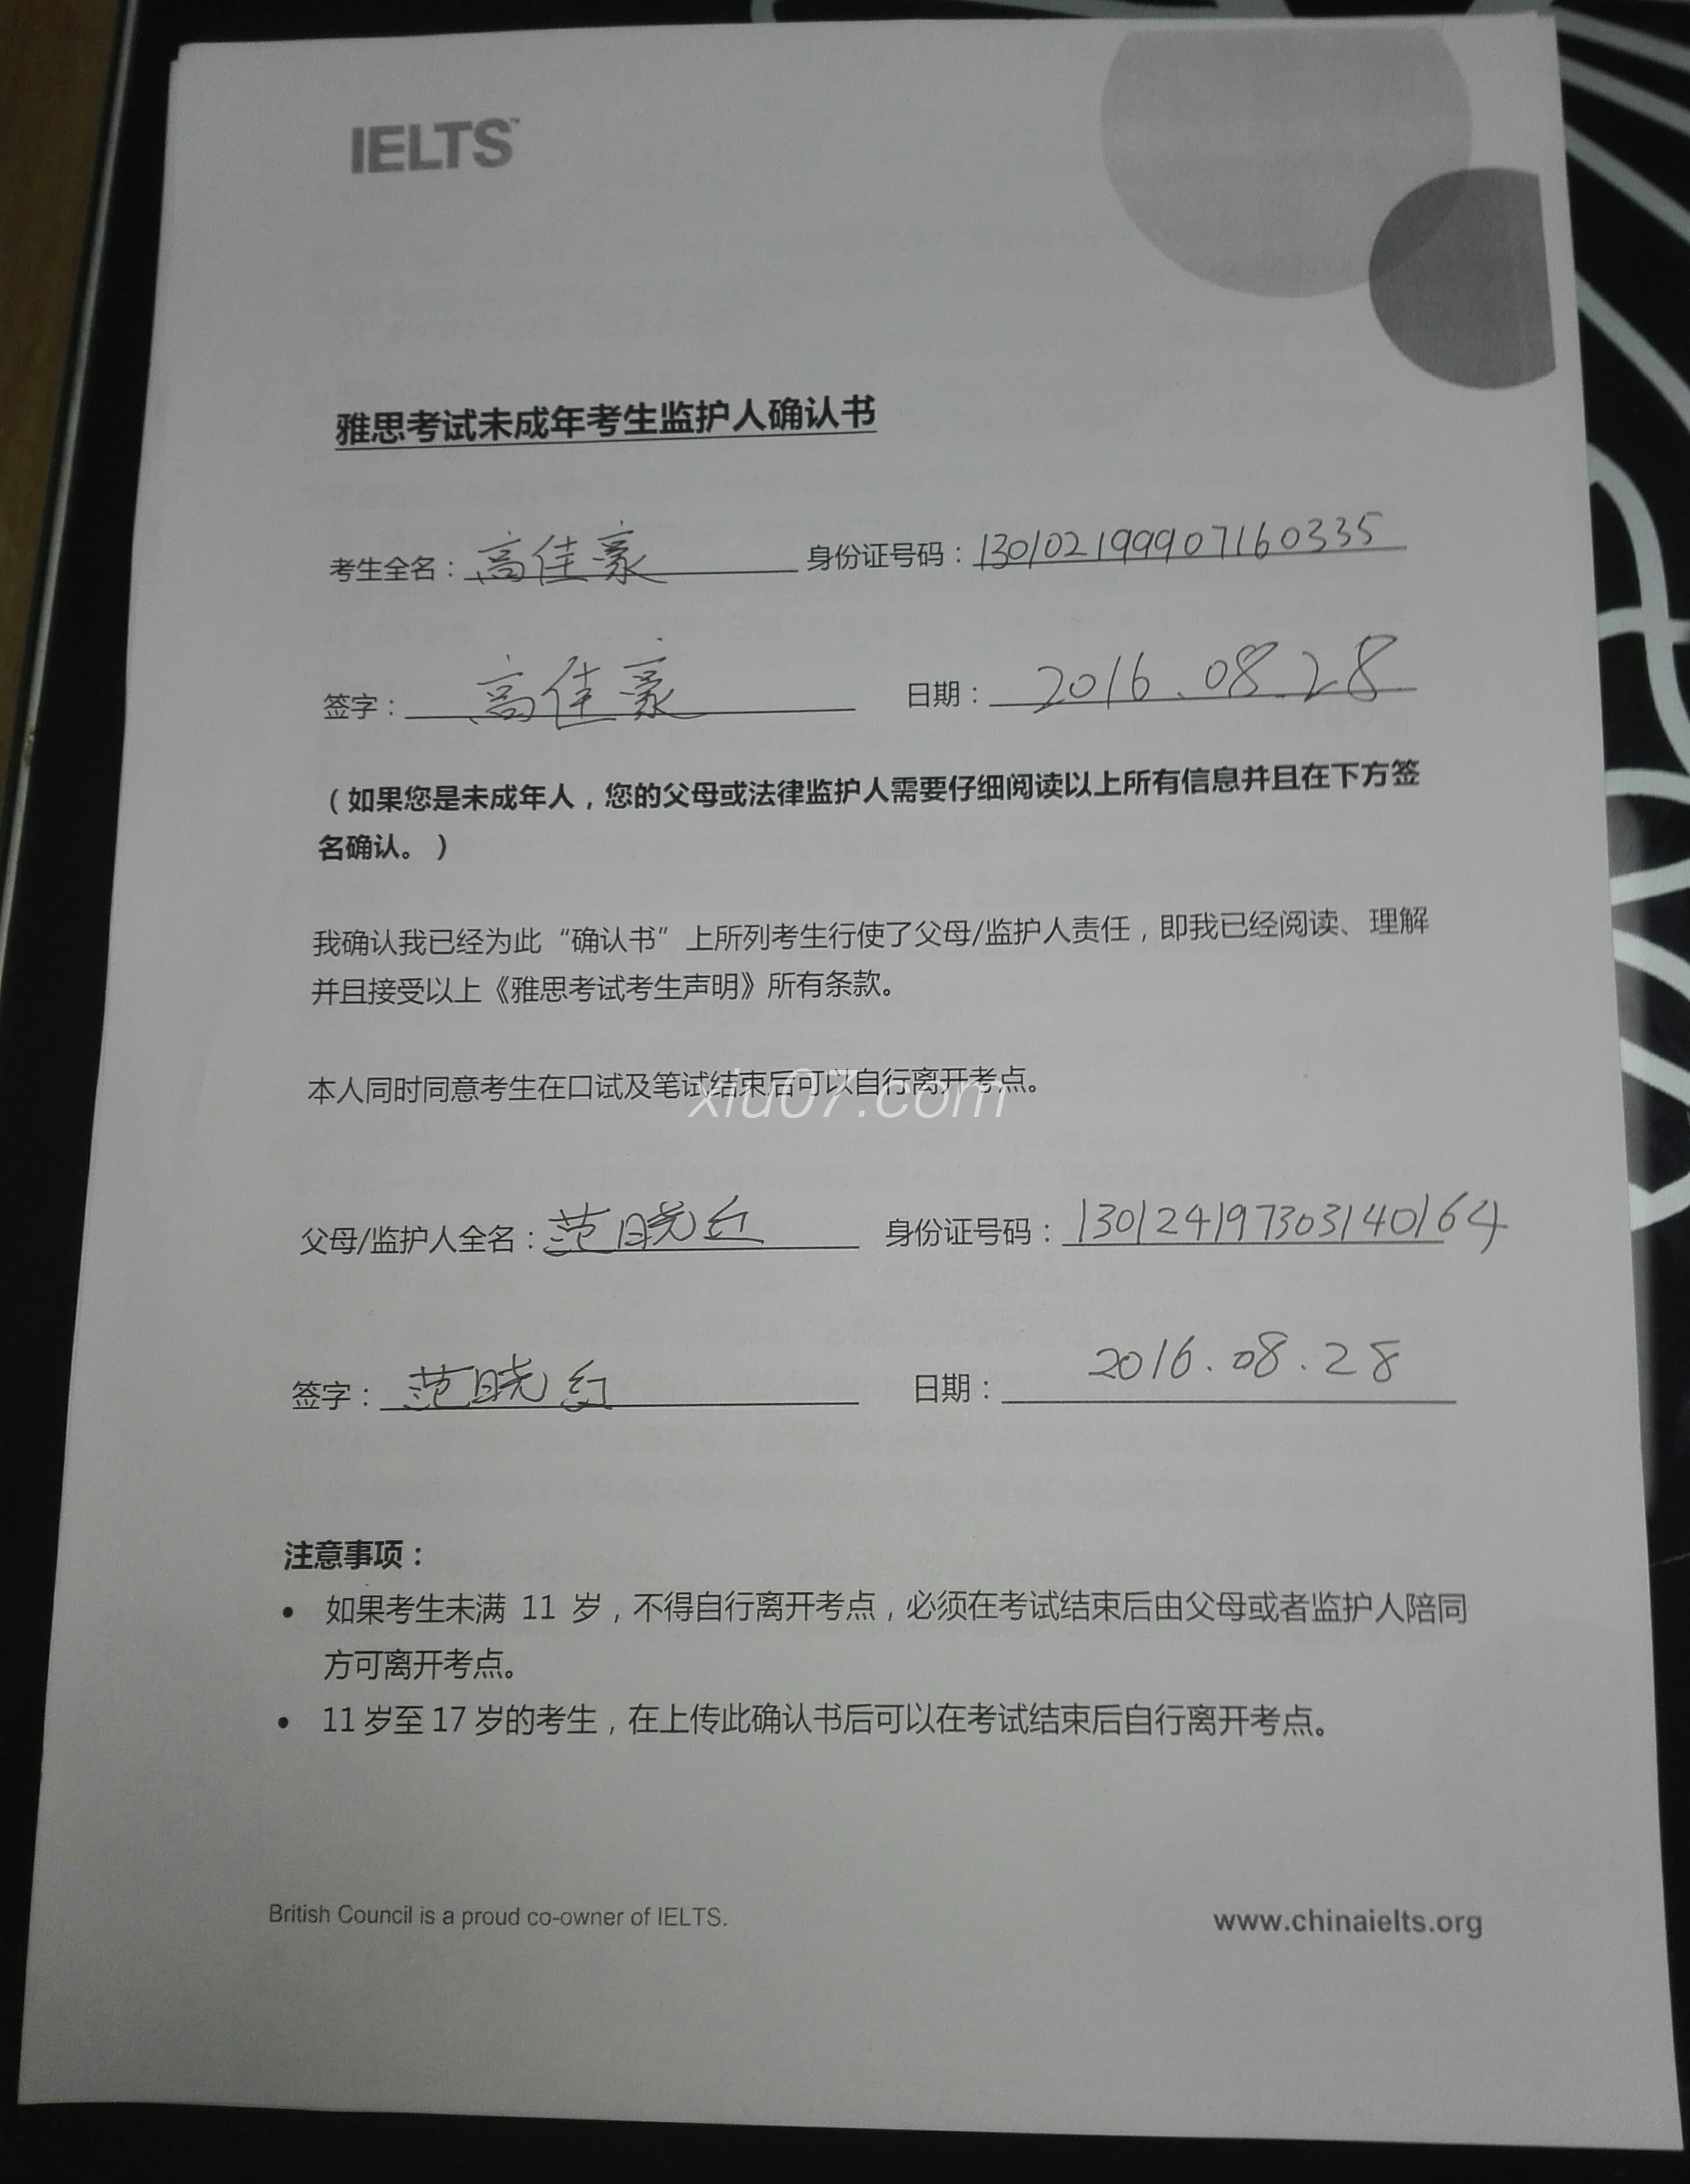 IELTS™
雅思考试未成年考生监护人确认书
考生全名：高佳豪 身份证号码：130102199907160335
签字：高佳豪 日期：2016.08.28
（如果您是未成年人，您的父母或法律监护人需要仔细阅读以上所有信息并且在下方签
名确认。）
我确认我已经为此“确认书”上所列考生行使了父母/监护人责任，即我已经阅读、理解
并且接受以上《雅思考试考生声明》所有条款。
本人同时同意考生在口试及笔试结束后可以自行离开考点。
xiu07.com
父母/监护人全名：范晓红 身份证号码：130124197303140164
签字：范晓红 日期：2016.08.28
注意事项：
• 如果考生未满 11 岁，不得自行离开考点，必须在考试结束后由父母或者监护人陪同
方可离开考点。
• 11 岁至 17 岁的考生，在上传此确认书后可以在考试结束后自行离开考点。
British Council is a proud co-owner of IELTS. www.chinaielts.org